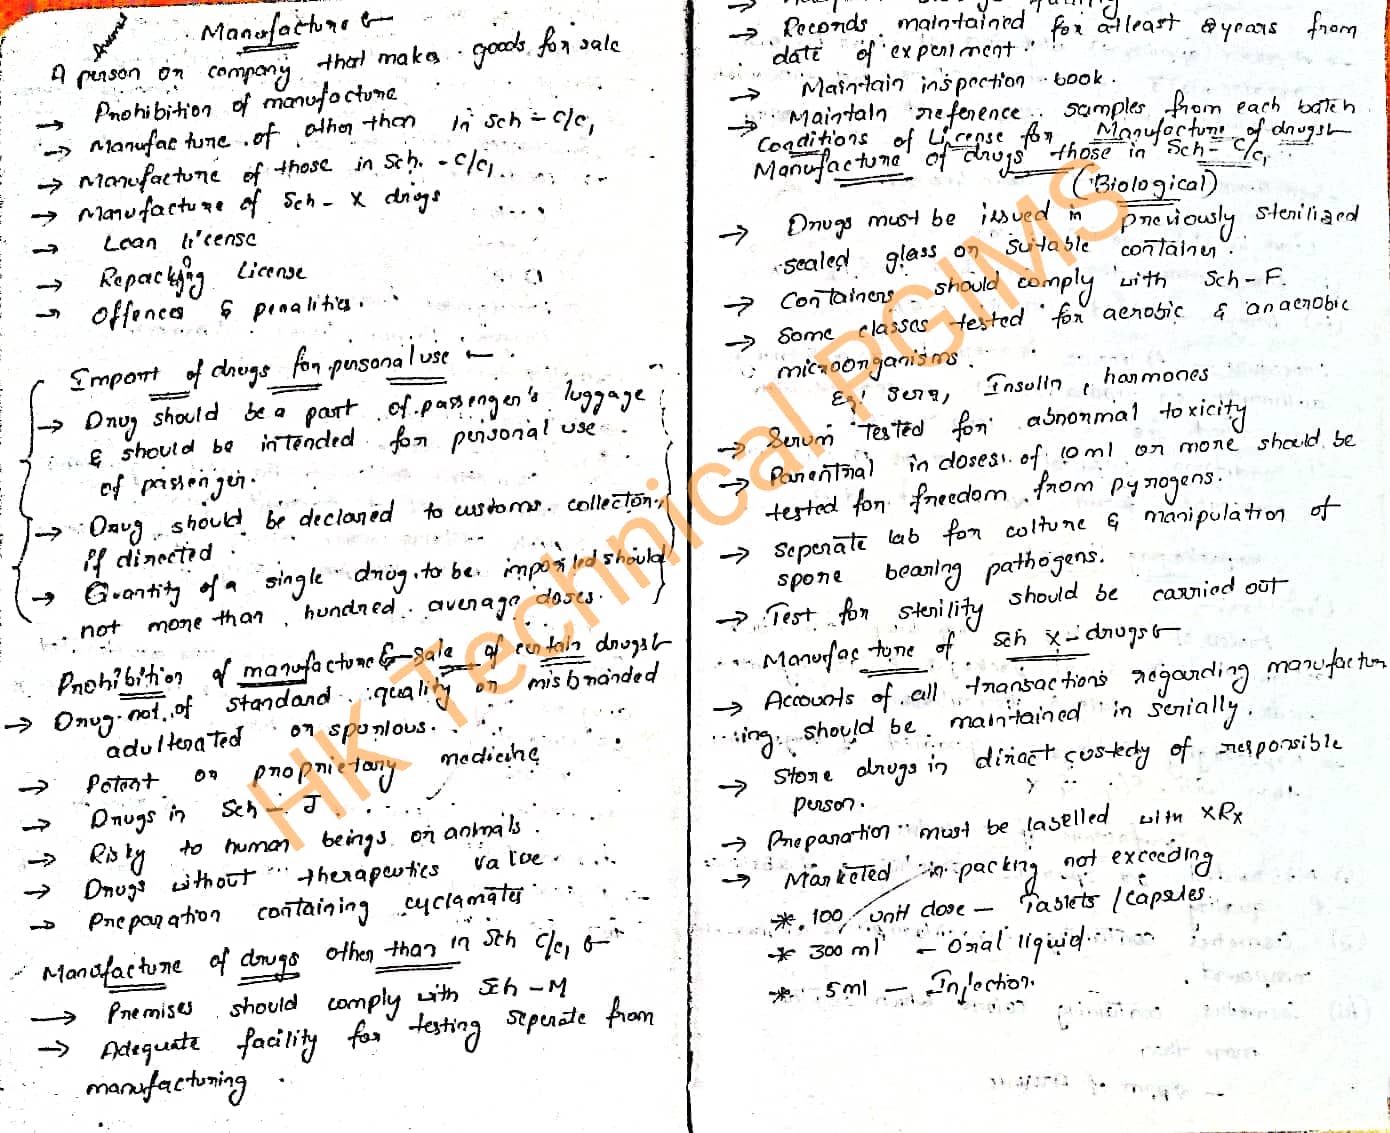 Manufacture :-
A person or company that makes goods for sale
→ Prohibition of manufacture
→ Manufacture of other than in sch - C/C1
→ Manufacture of those in Sch. - C/C1
→ Manufacture of Sch - X drugs
→ Loan license
→ Repacking License
→ Offences & penalities.
Import of drugs for personal use :-
→ Drug should be a part of passenger's luggage
& should be intended for personal use
of passenger.
→ Drug should be declared to customs collector,
if directed.
→ Quantity of a single drug to be imported should
not more than hundred average doses.
Prohibition of manufacture & sale of certain drugs :-
→ Drug not of standard quality or misbranded
adulterated or spurious.
→ Patent or proprietary medicine
→ Drugs in Sch - J
→ Risky to human beings or animals.
→ Drugs without therapeutics value.
→ Preparation containing cyclamates
Manufacture of drugs other than in Sch C/C1 :-
→ Premises should comply with Sch - M
→ Adequate facility for testing seperate from
manufacturing.
→ Records maintained for atleast 2 years from
date of experiment.
→ Maintain inspection book.
→ Maintain reference samples from each batch
Conditions of License for Manufacture of drugs :-
Manufacture of drugs those in Sch - C/C1
(Biological)
→ Drugs must be issued in previously sterilized
sealed glass or suitable container.
→ Containers should comply with Sch - F.
→ Some classes tested for aerobic & anaerobic
microorganisms.
Eg: Sera, Insulin, hormones
→ Serum tested for abnormal toxicity
→ Parentral in doses of 10 ml or more should be
tested for freedom from pyrogens.
→ Seperate lab for colture & manipulation of
spore bearing pathogens.
→ Test for sterility should be carried out
Manufacture of Sch X - drugs :-
→ Accounts of all transactions regarding manufactur
ing should be maintained in serially.
→ Store drugs in direct custedy of responsible
person.
→ Preparation must be labelled with XRx
→ Marketed in packing not exceeding
* 100 unit dose - Tablets / Capsules
* 300 ml - Oral liquid
* 5ml - Injection.
HK Technical PGIMS